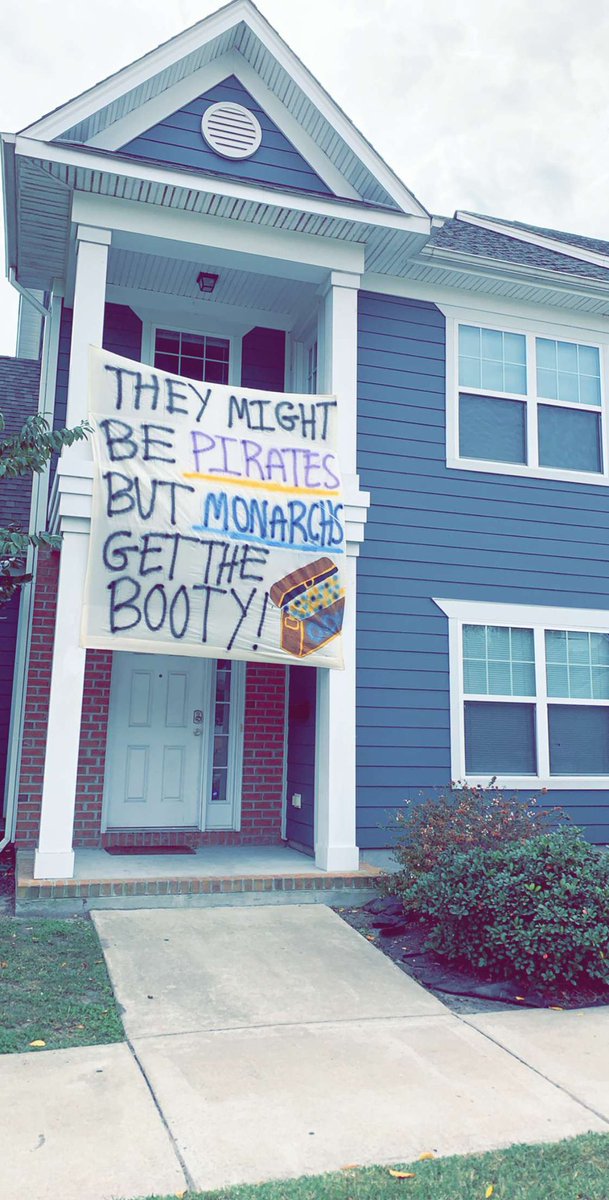 THEY MIGHT
BE PIRATES
BUT MONARCHS
GET THE
BOOTY!